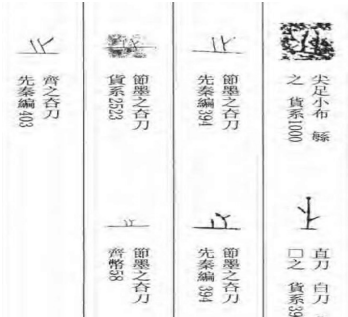 尖足小布 𥿋
之 貨系1000
直刀 白刀
□之 貨系39
節墨之夻刀
先秦編394
節墨之夻刀
先秦編394
節墨之夻刀
貨系2523
節墨之夻刀
齊幣58
齊之夻刀
先秦編403